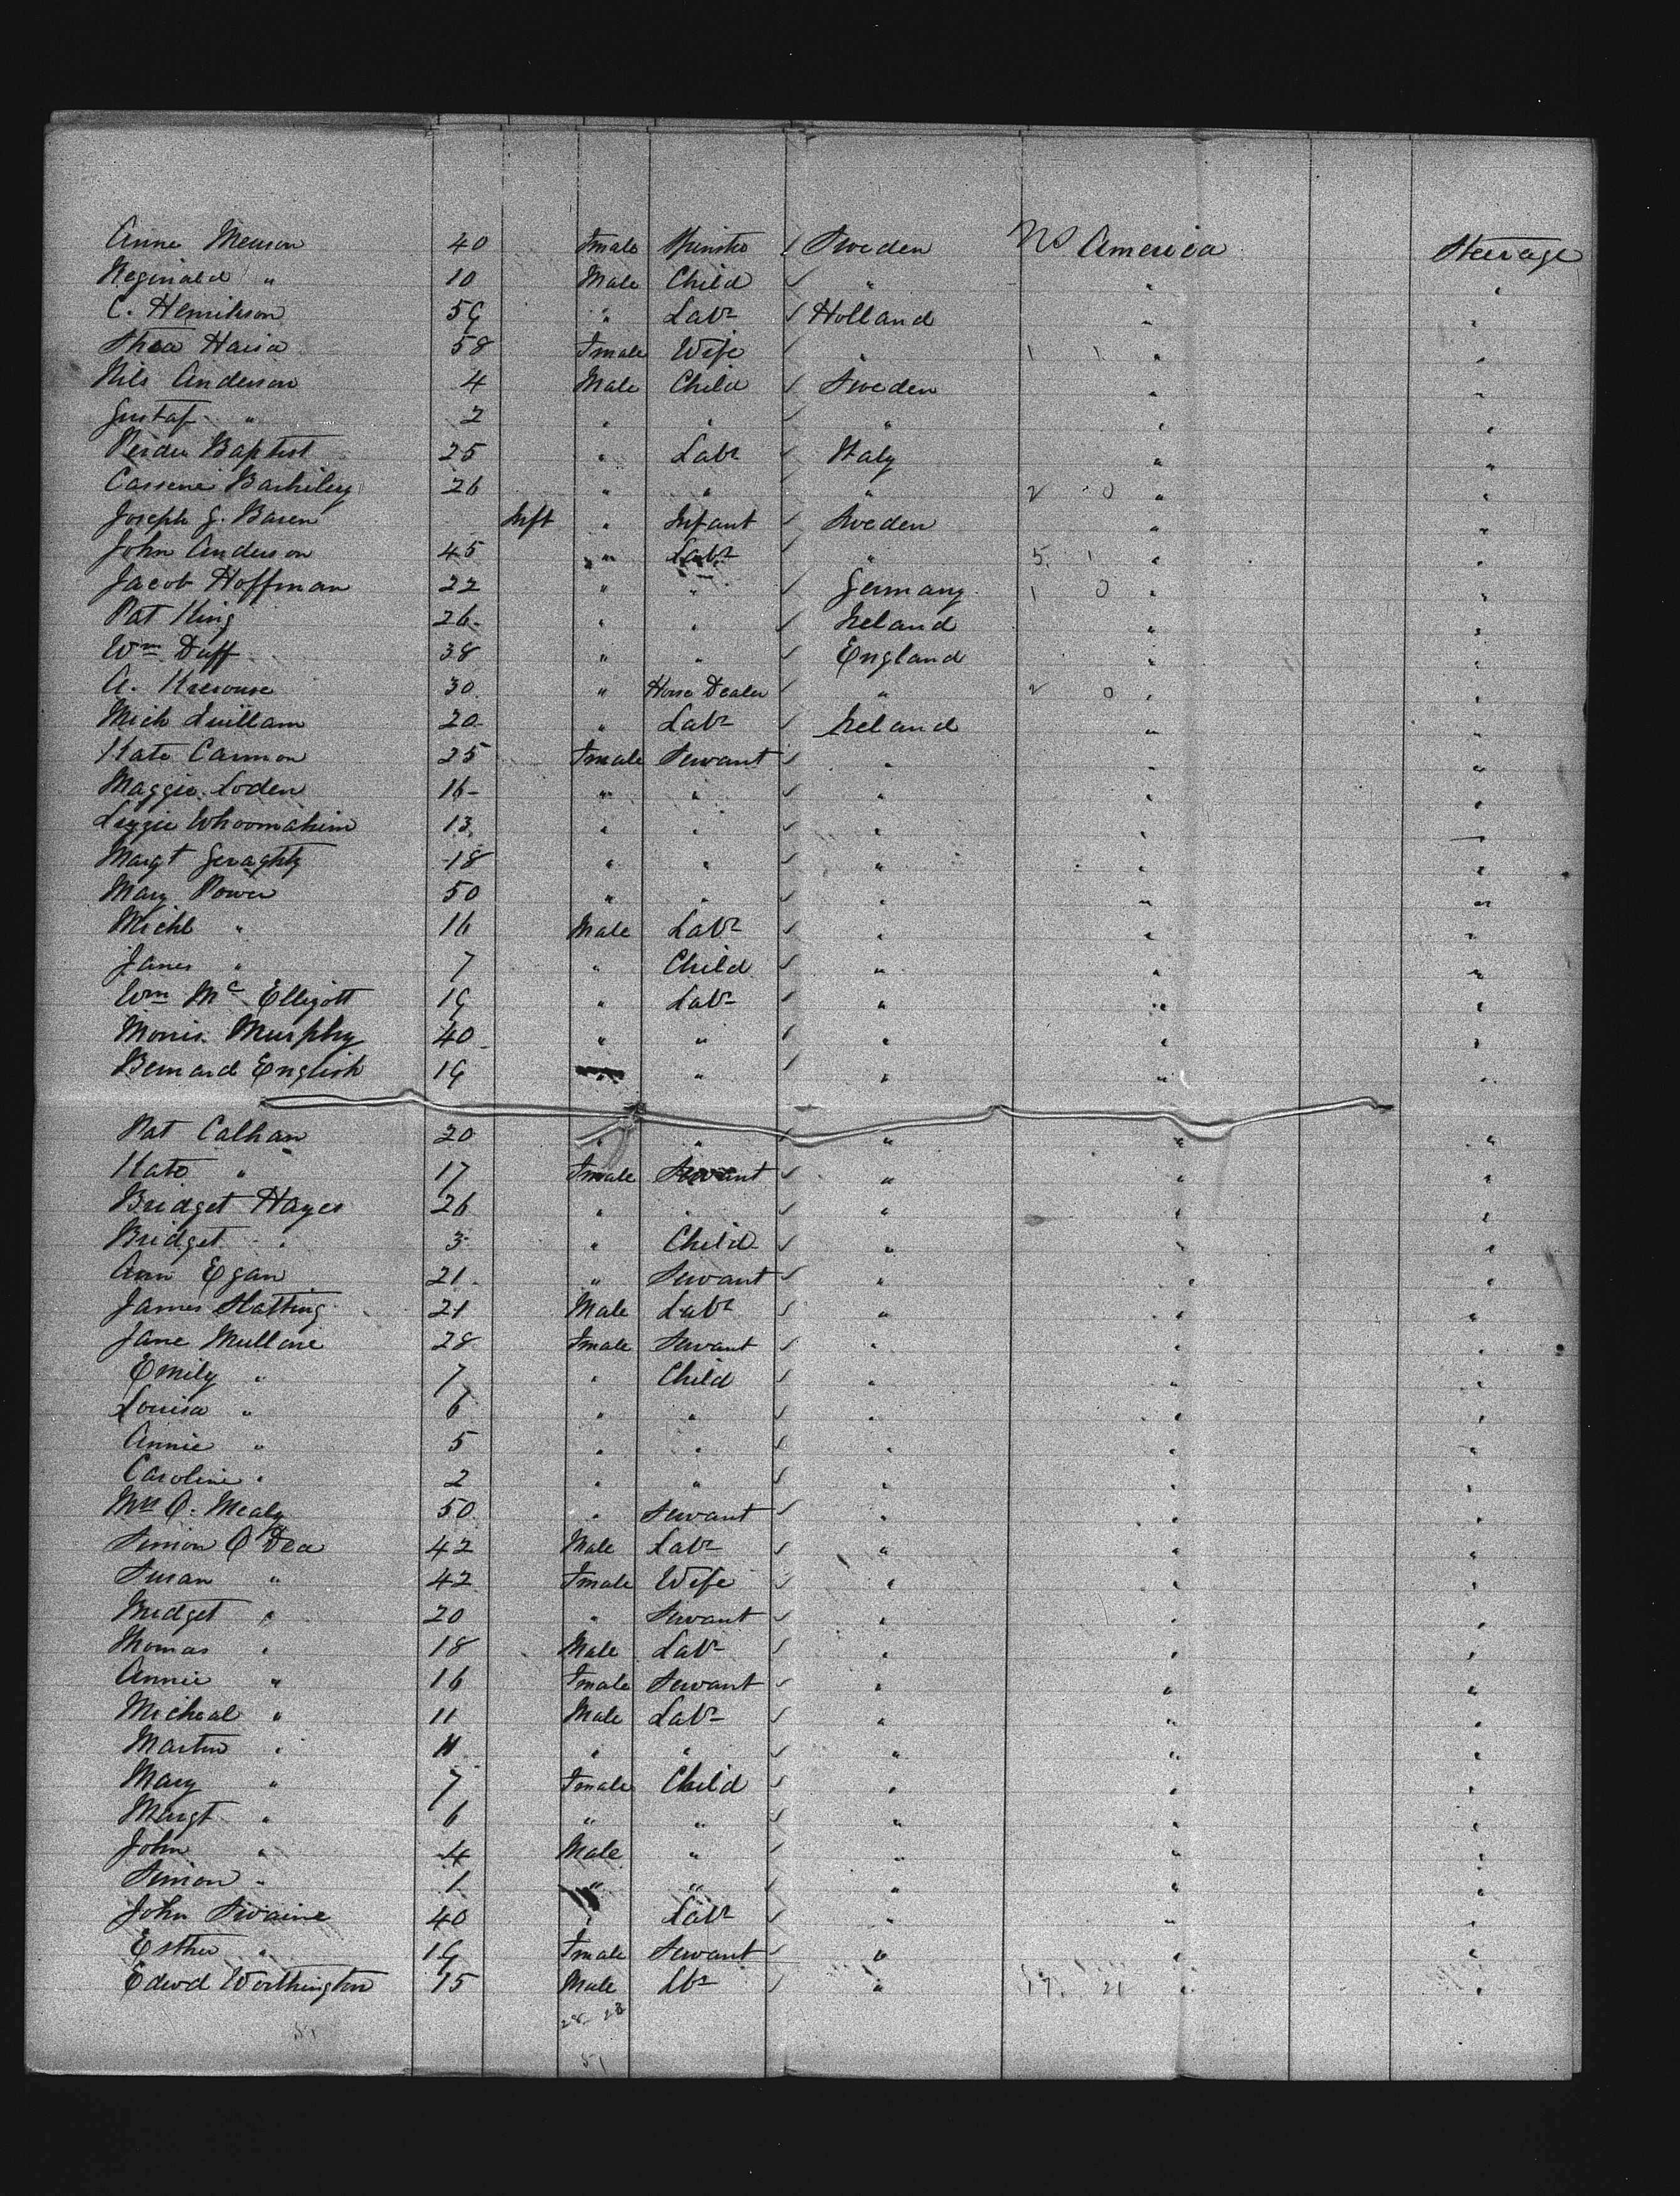 Anne Menson 40 Fmale Spinstr ✓ Sweden N America Steerage
Reginald " 10 Male Child ✓ " " "
C. Henrikson 59 " Labr ✓ Holland " "
Thea Haisa 58 Fmale Wife ✓ " 1 1 " "
Nils Anderson 4 Male Child ✓ Sweden " "
Gustaf " 2 " " ✓ " " "
Baptist 25 " Labr ✓ Italy " "
26 " " ✓ " 2 0 " "
Joseph G. Baren Inft " Infant ✓ Sweden " "
John Anderson 45 " Labr ✓ " 5 1 " "
Jacob Hoffman 22 " " ✓ Germany 1 0 " "
Pat King 26 " " ✓ Ireland " "
Wm Duff 38 " " ✓ England " "
A. Krerouse 30 " Horse Dealer ✓ " 2 0 " "
Mich Quillam 20 " Labr ✓ Ireland " "
Kate Cannon 25 Fmale Servant ✓ " " "
Maggie Loden 16 " " ✓ " " "
Lizzie Whoomahim 13 " " ✓ " " "
Margt Geraghty 18 " " ✓ " " "
Mary Power 50 " " ✓ " " "
Michl " 16 Male Labr ✓ " " "
James " 7 " Child ✓ " " "
Wm Mc Elligott 19 " Labr ✓ " " "
Morris Murphy 40 " " ✓ " " "
Bernard English 19 " " ✓ " " "
Pat Calhan 20 " " ✓ " " "
Kate " 17 Fmale Servant ✓ " " "
Bridget Hayes 26 " " ✓ " " "
Bridget " 3 " Child ✓ " " "
Ann Egan 21 " Servant ✓ " " "
James Slatting 21 Male Labr ✓ " " "
Jane Mullane 28 Fmale Servant ✓ " " "
Emily " 7 " Child ✓ " " "
Louisa " 6 " " ✓ " " "
Annie " 5 " " ✓ " " "
Caroline " 2 " " ✓ " " "
Mrs O. Mealy 50 " Servant ✓ " " "
Simon O Dea 42 Male Labr ✓ " " "
Susan " 42 Fmale Wife ✓ " " "
Bridget " 20 " Servant ✓ " " "
Thomas " 18 Male Labr ✓ " " "
Annie " 16 Fmale Servant ✓ " " "
Micheal " 11 Male Labr ✓ " " "
Martin " 11 " " ✓ " " "
Mary " 7 Fmale Child ✓ " " "
Margt " 6 " " ✓ " " "
John " 4 Male " ✓ " " "
Simon " 1 " " ✓ " " "
John Swaine 40 " Labr ✓ " " "
Esther " 19 Fmale Servant ✓ " " "
Edwd Worthington 15 Male Lbr ✓ " 17 21 " "
28 23
51 51